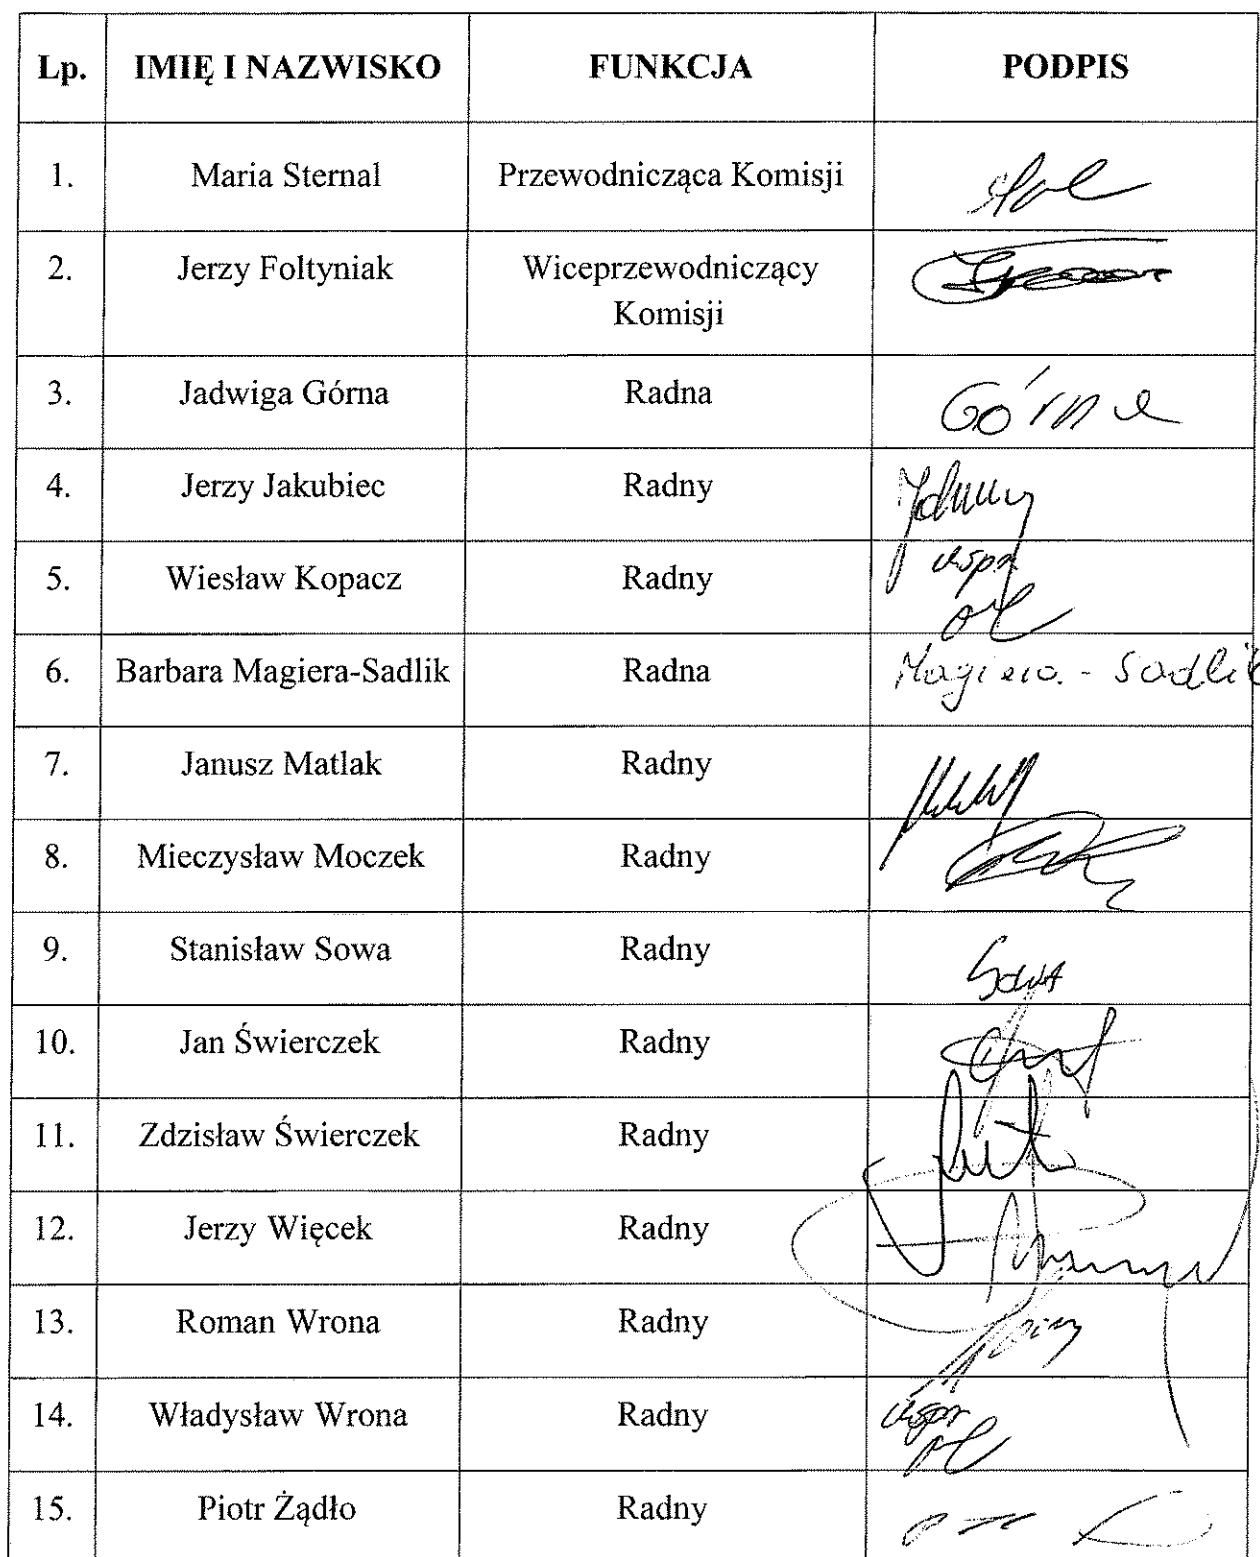 Lp. IMIĘ I NAZWISKO FUNKCJA PODPIS
1. Maria Sternal Przewodnicząca Komisji
2. Jerzy Foltyniak Wiceprzewodniczący
Komisji
3. Jadwiga Górna Radna Górna
4. Jerzy Jakubiec Radny
5. Wiesław Kopacz Radny
6. Barbara Magiera-Sadlik Radna Magiera - Sadlik
7. Janusz Matlak Radny
8. Mieczysław Moczek Radny
9. Stanisław Sowa Radny Sowa
10. Jan Świerczek Radny
11. Zdzisław Świerczek Radny
12. Jerzy Więcek Radny
13. Roman Wrona Radny
14. Władysław Wrona Radny
15. Piotr Żądło Radny